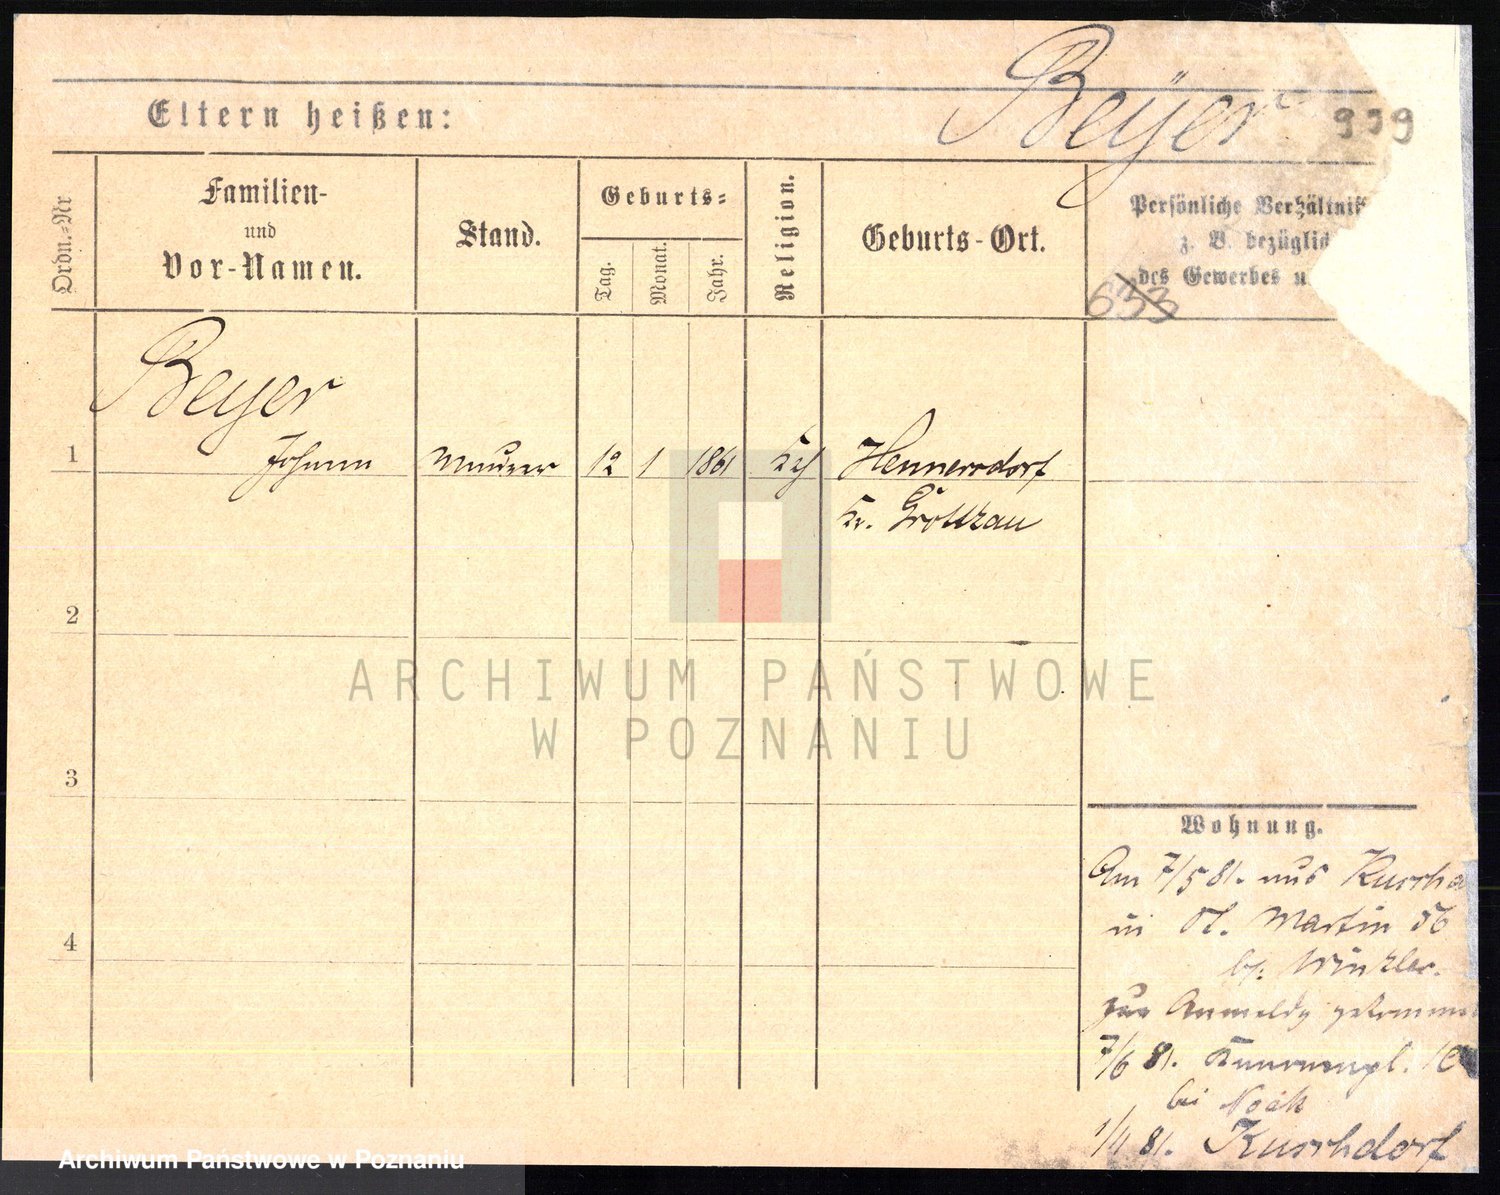 Beÿer
Eltern heißen:
9 9
Ordn.-Nr
Familien-
und
Vor-Namen.
Stand.
Geburts-
Tag.
Monat.
Jahr.
Religion.
Geburts-Ort.
Persönliche Verhältniss
z. B. bezüglich
des Gewerbes u
633
Beyer
1 Johann Maurer 12 1 1861 kth Hennersdorf
Kr. Grottkau
2
3
4
Wohnung.
Am 7/5 81. aus Kuschd
in St. Martin 56
bei Winkler.
zur Anmeldg gekommen
7/6 81. Kanonenpl. 10
bei Noak
81. Kuschdorf
ARCHIWUM PAŃSTWOWE
W POZNANIU
Archiwum Państwowe w Poznaniu